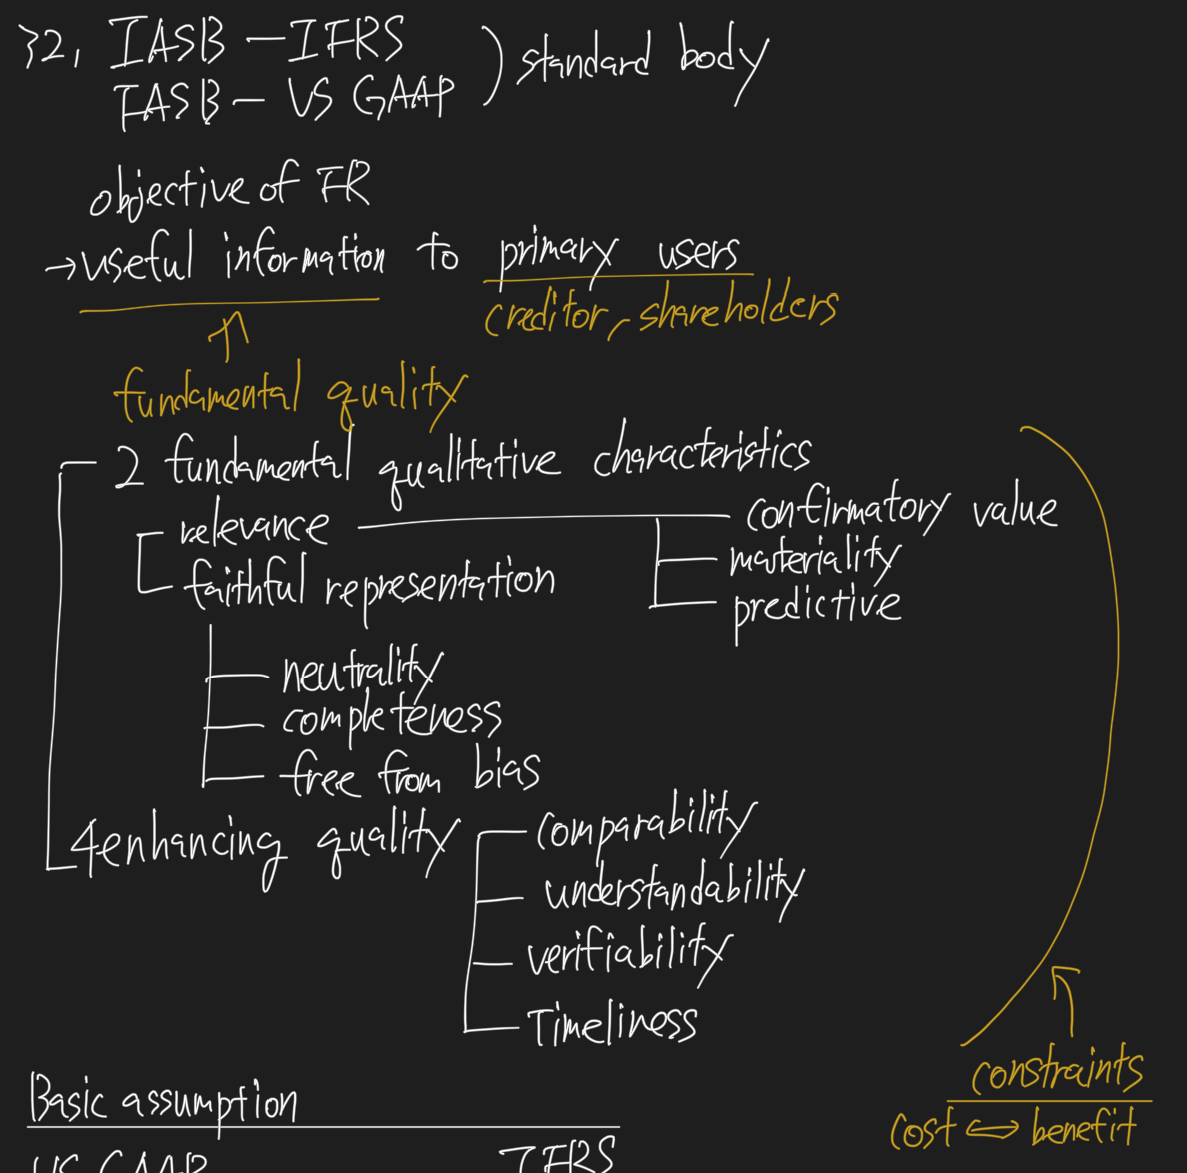 32, IASB - IFRS
FASB - US GAAP ) standard body
objective of FR
→ useful information to primary users
creditor, shareholders
fundamental quality
2 fundamental qualitative characteristics
relevance
confirmatory value
faithful representation
materiality
predictive
neutrality
completeness
free from bias
4 enhancing quality
comparability
understandability
verifiability
Timeliness
constraints
cost ⟺ benefit
Basic assumption
US GAAP IFRS